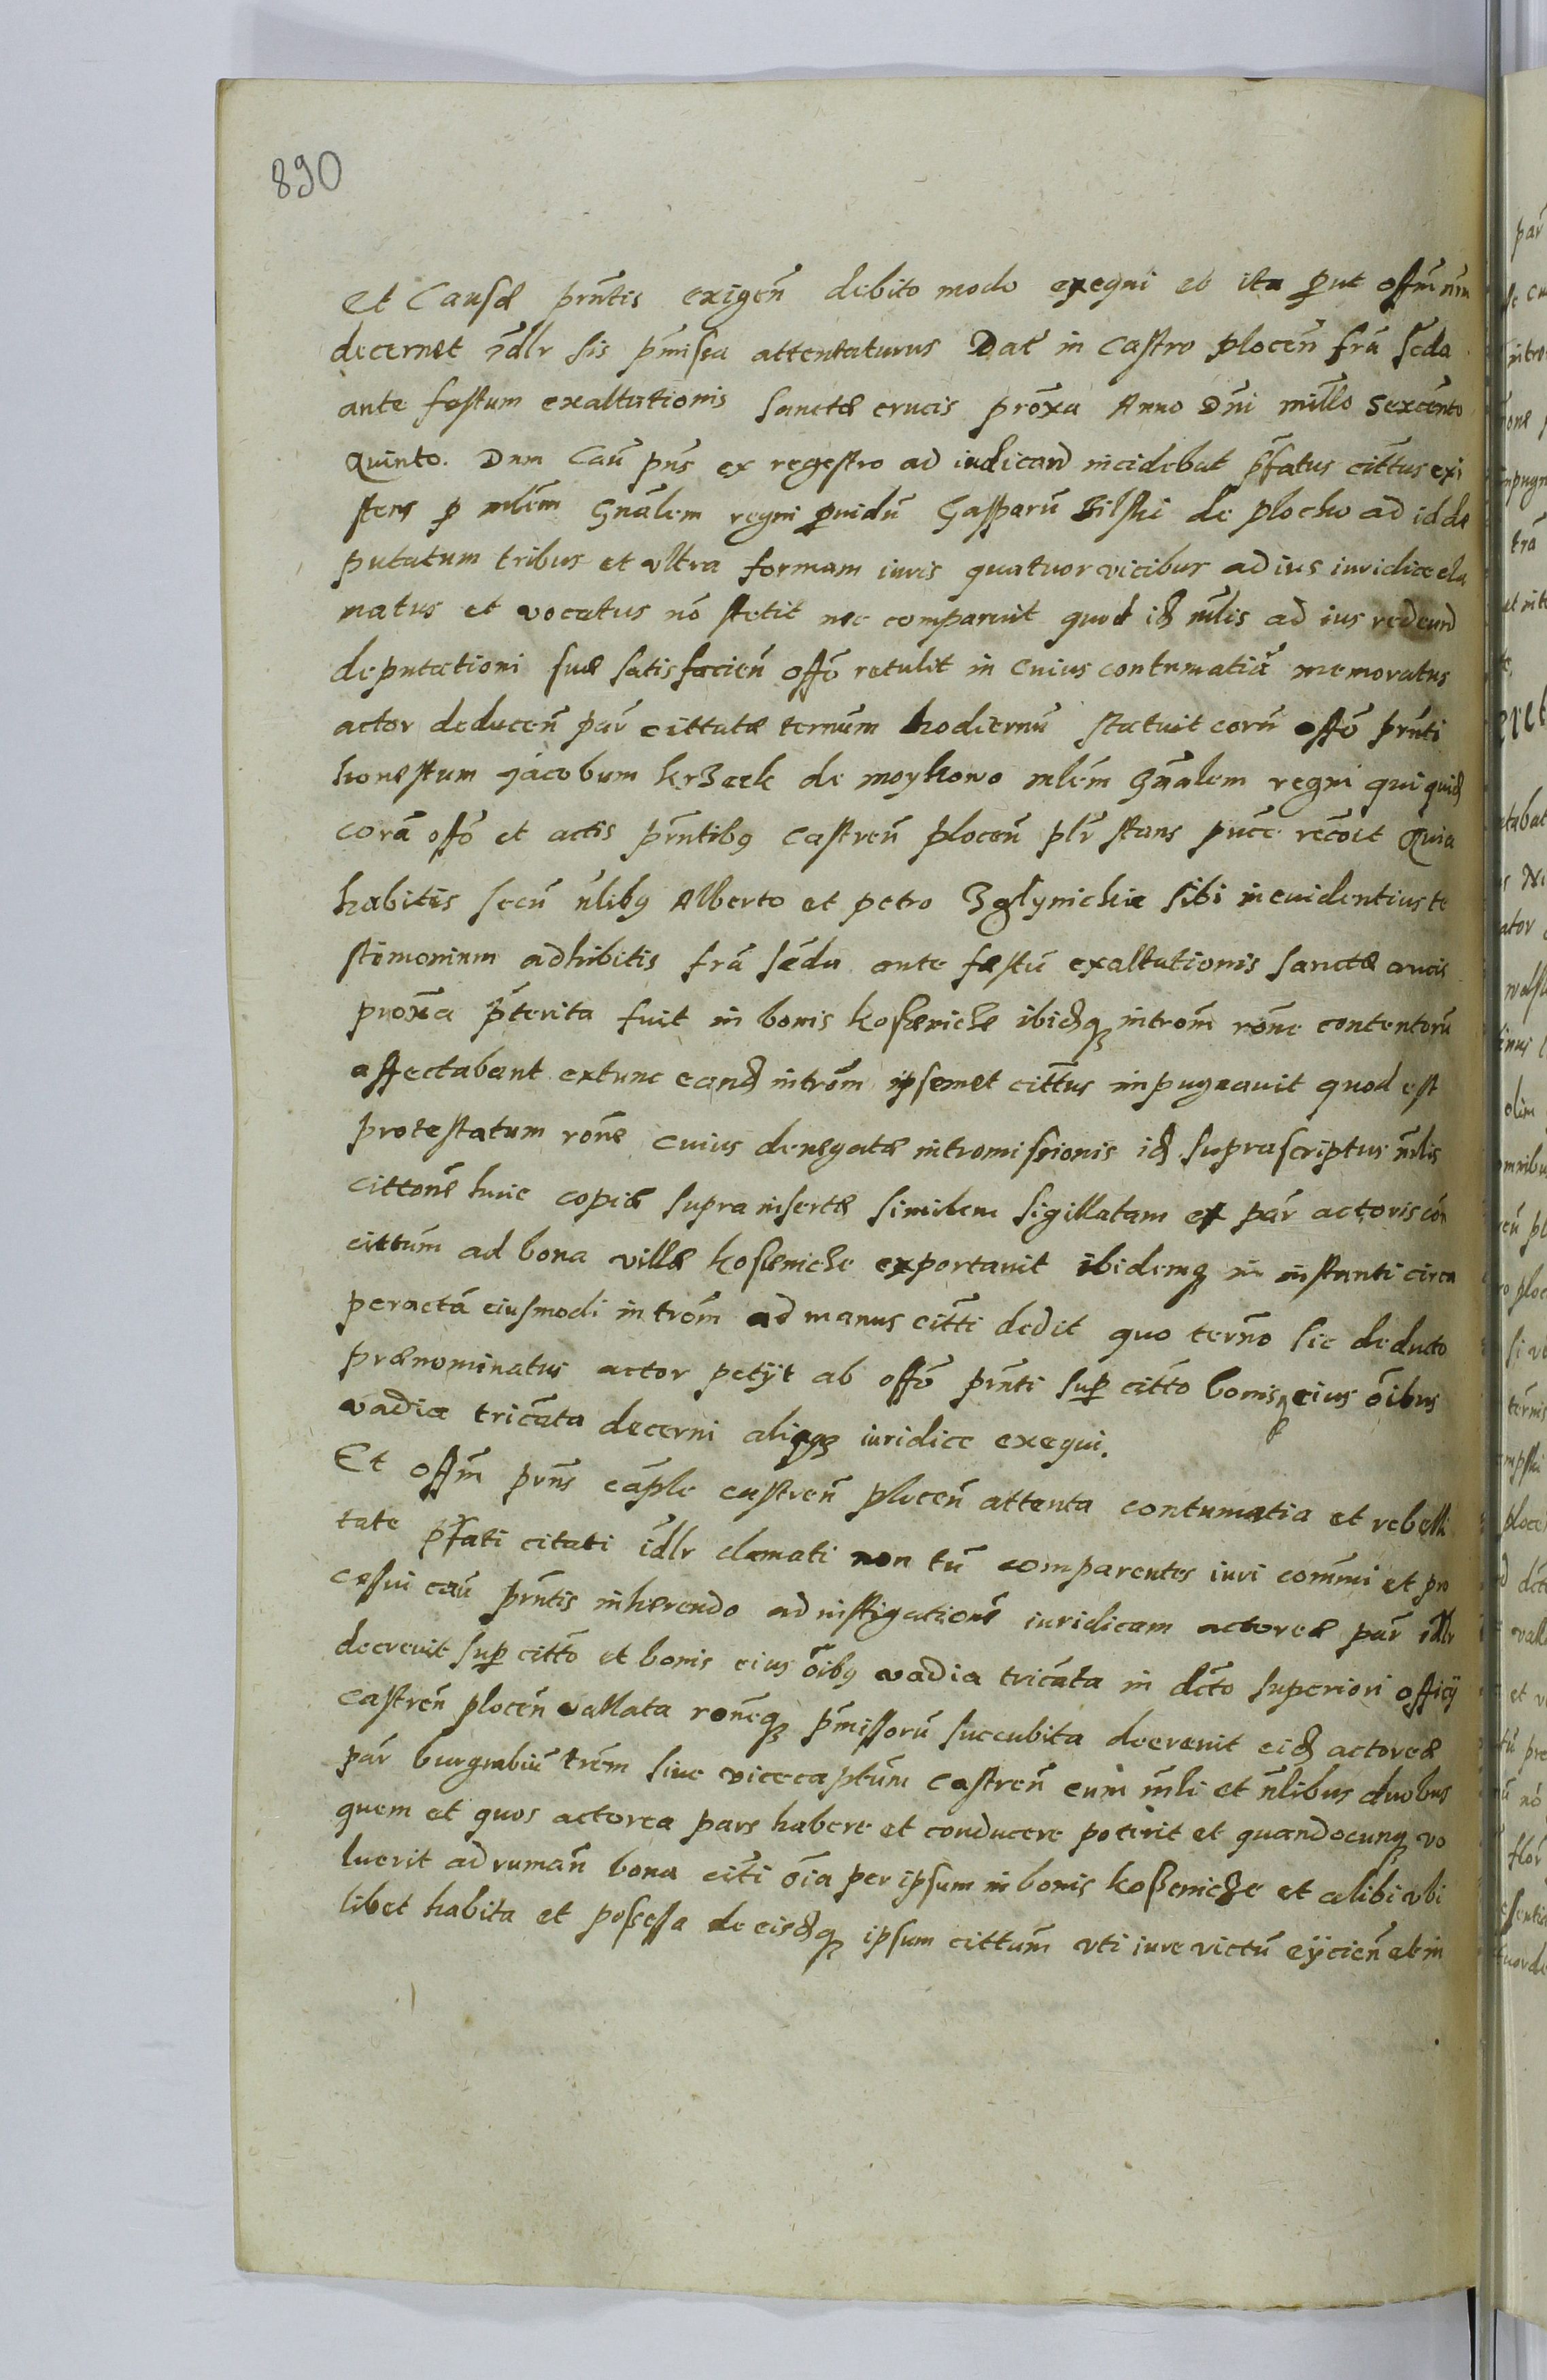 890
Et Causæ prñtis exigeñ debito modo exequi et ita ꝓut offm nrm
decernet idlr sis pmissa attentaturus Dat in Castro ploceñ fra seda
ante festum exaltationis Sanctæ crucis proxa Anno Dñi millo Sexcento
Quinto. Dum Cau pns ex regestro ad iudicand incidebat pfatus cittus exi
stens ꝑ mlem Gnalem regni ꝓvidu Gasparu Bilski de plocko ad id de
putatum tribus et vltra formam iuris quatuor vicibus ad ius iuridice cla
matus et vocatus no stetit nec comparuit quod idẽ mlis ad ius redeund
deputationi suæ satisfacieñ offo retulit in cuius contumatia memoratus
actor deduceñ par cittatæ termum hodiernu statuit coru offo prñti
honestum Jacobum krzeek de moykowo mlem Gnalem regni qui quidẽ
cora offo et actis prñtibꝫ Castreñ ploceñ plr stans puce recoit Quia
habitis secu nlibꝫ Alberto et petro Zglynickie sibi in euidentius te
stimonium adhibitis fra seda ante festu exaltationis sanctæ crucis
proxa pterita fuit in bonis kosseniche ibidẽqꝫ introm rone contentoru
affectabant extunc eandẽ introm ipsemet cittus impugnauit quod est
protestatum rone cuius denegatæ intromissionis idẽ suprascriptus mlis
cittone huic copiæ supra insertæ similem sigillatam ex par actoris con
cittum ad bona villæ kosseniche exportauit ibidemqꝫ in instanti circa
peracta eiusmodi introm ad manus citti dedit quo terno sic deducto
prænominatus actor petijt ab offo prñti suꝑ citto bonisqꝫ eius oibus
vadia tricata decerni aliqꝫ iuridice exequi.
Et offm prns caple castreñ ploceñ attenta contumatia et rebelli
tate pfati citati idlr clamati non tu comparentes iuri commi et pro
cessui cau prñtis inhærendo ad instigationẽ iuridicam actoreæ par idlr
decreuit suꝑ citto et bonis eius oibꝫ vadia tricata in dcto superiori officij
castreñ ploceñ vallata roneqꝫ pmissoru succubita decreuit eidẽ actoreæ
par burgrabiu trem siue vicecaptum castreñ cum mli et nlibus duobus
quem et quos actorea pars habere et conducere poterit et quandocunqꝫ vo
luerit ad rumañ bona citi oia per ipsum in bonis kosseniche et alibi vbi
libet habita et possessa de eisdẽqꝫ ipsum cittum vti iure victu eijcieñ et in